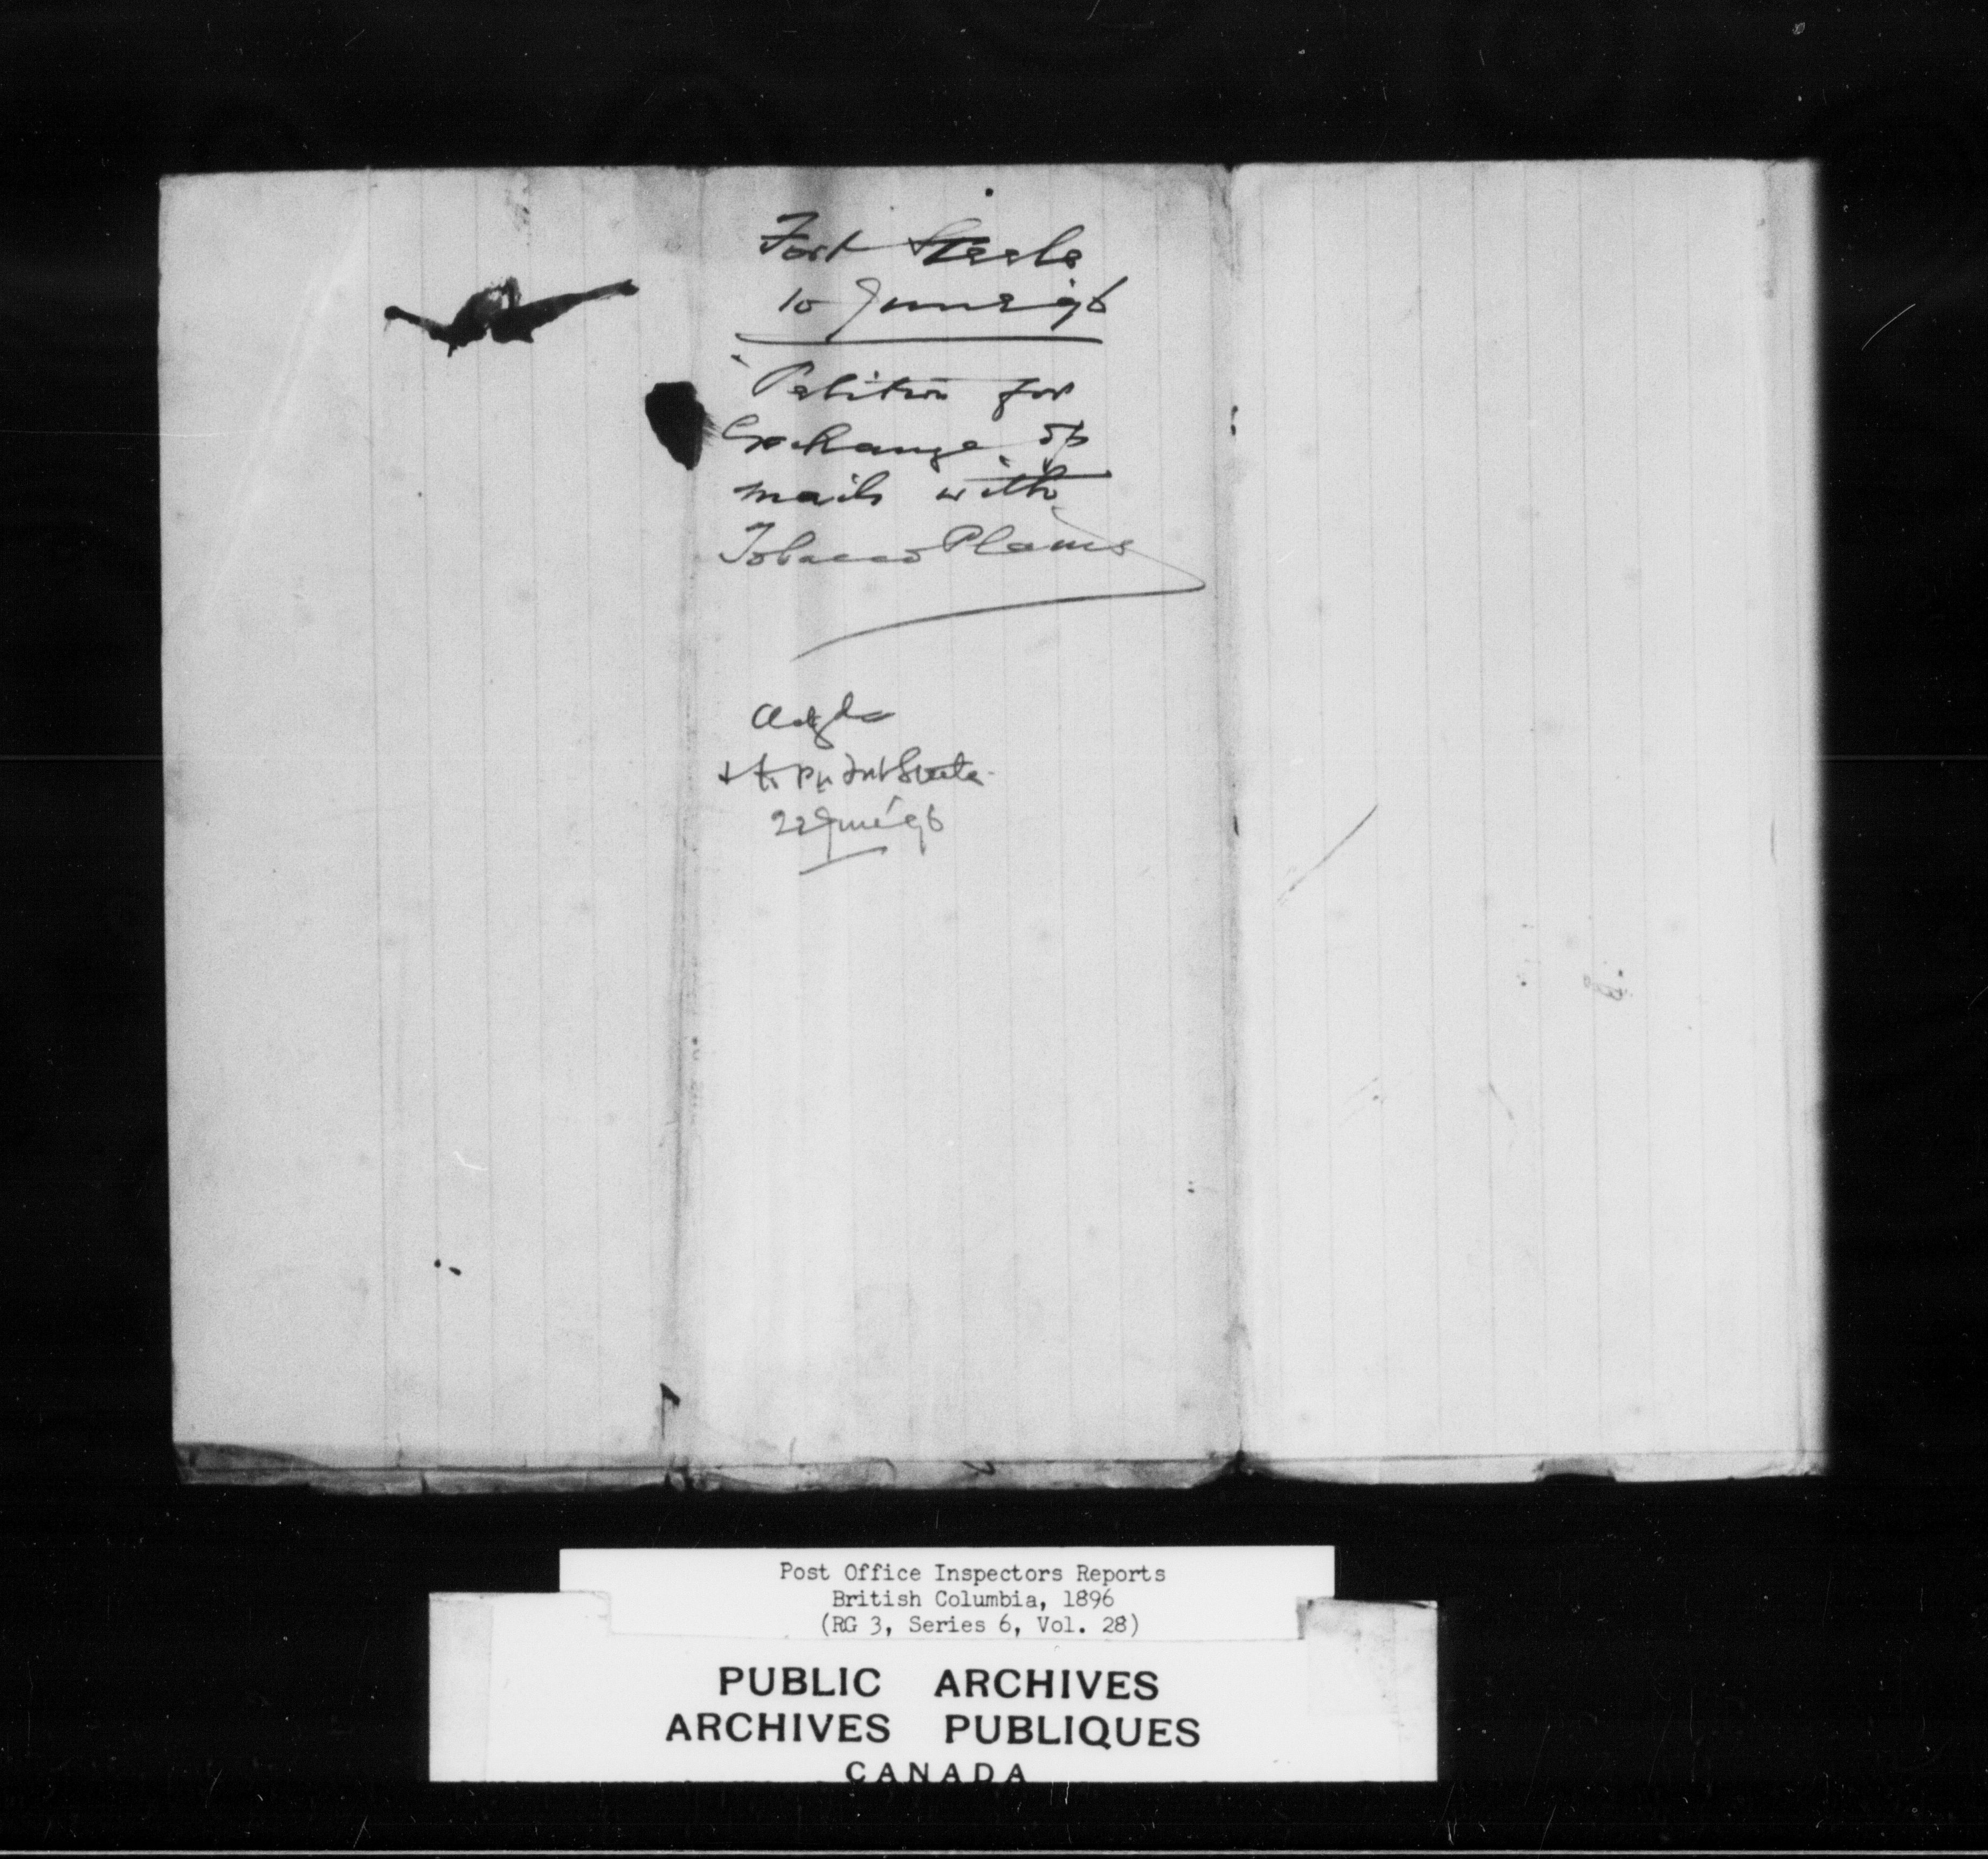 Fort Steele
10 June 96
Petition for
Exchange of
mails with
Tobacco Plains
Ackgd
+ to PM Fort Steele
22 June '96
Post Office Inspectors Reports
British Columbia, 1896
(RG 3, Series 6, Vol. 28)
PUBLIC ARCHIVES
ARCHIVES PUBLIQUES
CANADA